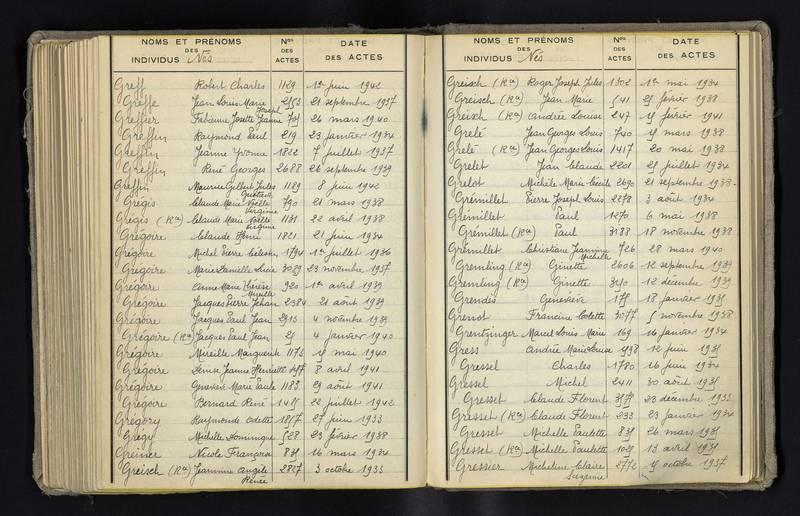 NOMS ET PRÉNOMS
DES
INDIVIDUS Nés
Nos
DES
ACTES
DATE
DES ACTES
Greff Robert Charles 1129 1er juin 1942
Greffe Jean Louis Marie Joseph 2153 21 septembre 1937
Greffier Fabienne Josette Jeanne 26 mars 1940
Greffin Raymond Paul 219 23 janvier 1934
Greffin Jeanne Yvonne 1822 7 juillet 1937
Greffin René Georges 2688 26 septembre 1939
Greffin Maurice Gilbert Jules Gustave 1189 8 juin 1942
Grégis Claude Marie Noëlle Virginie 790 21 mars 1938
Grégis (Ron) Claude Marie Noëlle Virginie 1131 22 avril 1938
Grégoire Claude Henri 1821 21 juin 1934
Grégoire Michel Pierre Célestin 1794 1er juillet 1936
Grégoire Lucie 3089 23 novembre 1937
Grégoire Anne Marie Thérèse Mireille 920 1er avril 1939
Grégoire Jacques Pierre Jehan 2384 21 août 1939
Grégoire Jacques Paul Jean 2913 4 novembre 1939
Grégoire (Ron) Jacques Paul Jean 25 4 janvier 1940
Grégoire Mireille Marguerite 1173 mai 1940
Grégoire Denise Jeanne Henriette 8 avril 1941
Grégoire Geneviève Marie Paule 1183 29 août 1941
Grégoire Bernard René 1485 22 juillet 1942
Grégory Raymonde Odette 1857 27 juin 1933
Grégy Michelle Dominique 528 23 février 1938
Greiner Nicole Françoise 835 16 mars 1934
Greisch (Ron) Jeannine Angèle Renée 2857 3 octobre 1933
NOMS ET PRÉNOMS
DES
INDIVIDUS Nés
Nos
DES
ACTES
DATE
DES ACTES
Greisch (Ron) Roger Joseph Jules 1302 1er mai 1934
Greisch (Ron) Jean Marie 541 25 février 1938
Greisch (Ron) Andrée Louise 247 15 février 1941
Grelé Jean Georges Louis 740 15 mars 1938
Grelé (Ron) Jean Georges Louis 1417 20 mai 1938
Grelet Jean Claude 2201 25 juillet 1934
Grelot Michèle Marie Cécile 2690 21 septembre 1938
Grémillet Pierre Joseph Louis 2278 3 août 1934
Grémillet Paul 1270 6 mai 1938
Grémillet (Ron) Paul 3188 18 novembre 1938
Grémillet Christiane Jeannine Michelle 726 28 mars 1940
Gremling (Ron) Ginette 2606 12 septembre 1939
Gremling (Ron) Ginette 12 décembre 1939
Grendes Geneviève 18 janvier 1935
Grenot Francine Colette 3077 5 novembre 1938
Grentzinger Marcel Louis Marie 169 16 janvier 1934
Gress Andrée Marie Louise 12 juin 1935
Gressel Charles 1780 16 juin 1934
Gressel Michel 2411 30 août 1935
Gresset Claude Florent 23 décembre 1933
Gresset (Ron) Claude Florent 233 23 janvier 1934
Gresset Michelle Paulette 835 26 mars 1935
Gresset (Ron) Michelle Paulette 1025 13 avril 1935
Gressier Micheline Claire Suzanne 2772 4 octobre 1937